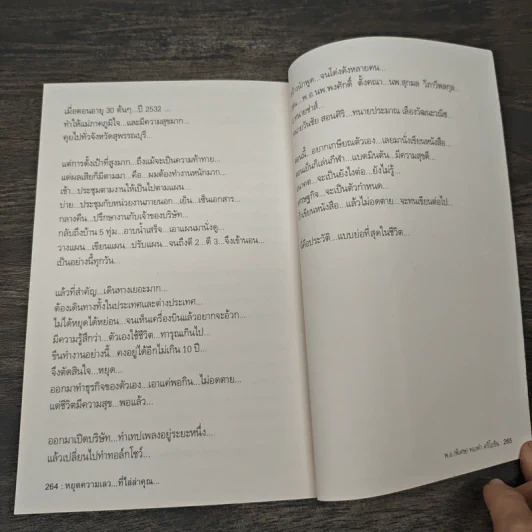 เมื่อตอนอายุ 30 ต้นๆ...ปี 2532 ...
ทำให้แม่ภาคภูมิใจ...และมีความสุขมาก...
คุยไปทั่วจังหวัดสุพรรณบุรี...
แต่การตั้งเป้าที่สูงมาก...ถึงแม้จะเป็นความท้าทาย...
แต่ผลเสียก็มีตามมา...คือ...ผมต้องทำงานหนักมาก...
เช้า...ประชุมตามงานให้เป็นไปตามแผน...
บ่าย...ประชุมกับหน่วยงานภายนอก...เย็น...เซ็นเอกสาร...
กลางคืน...ปรึกษางานกับเจ้าของบริษัท...
กลับถึงบ้าน 5 ทุ่ม...อาบน้ำเสร็จ...เอาแผนมานั่งดู...
วางแผน...เขียนแผน...ปรับแผน...จนถึงตี 2...ตี 3...จึงเข้านอน...
เป็นอย่างนี้ทุกวัน...
แล้วที่สำคัญ...เดินทางเยอะมาก...
ต้องเดินทางทั้งในประเทศและต่างประเทศ...
ไม่ได้หยุดได้หย่อน...จนเห็นเครื่องบินแล้วอยากจะอ้วก...
มีความรู้สึกว่า...ตัวเองใช้ชีวิต...ทารุณเกินไป...
ขืนทำงานอย่างนี้...คงอยู่ได้อีกไม่เกิน 10 ปี...
จึงตัดสินใจ...หยุด...
ออกมาทำธุรกิจของตัวเอง...เอาแค่พอกิน...ไม่อดตาย...
แต่ชีวิตมีความสุข...พอแล้ว...
ออกมาเปิดบริษัท...ทำเทปเพลงอยู่ระยะหนึ่ง...
แล้วเปลี่ยนไปทำทอล์กโชว์...
264 : หยุดความเลว...ที่ไล่ล่าคุณ...
นักพูด...จนโด่งดังหลายคน...
พ.อ.นพ.พงศักดิ์ ตั้งคณา...นพ.สุกมล วิภาวีพลกุล...
ทนายวันชัย สอนศิริ...ทนายประมาณ เลืองวัฒนะวณิช...
อยากเกษียณตัวเอง...เลยมานั่งเขียนหนังสือ...
เล่นกีฬา...แบดมินตัน...มีความสุขดี...
จะเป็นยังไงต่อ...ยังไม่รู้...
จะเป็นตัวกำหนด...
เขียนหนังสือ...แล้วไม่อดตาย...จะทนเขียนต่อไป...
ประวัติ...แบบย่อที่สุดในชีวิต...
265